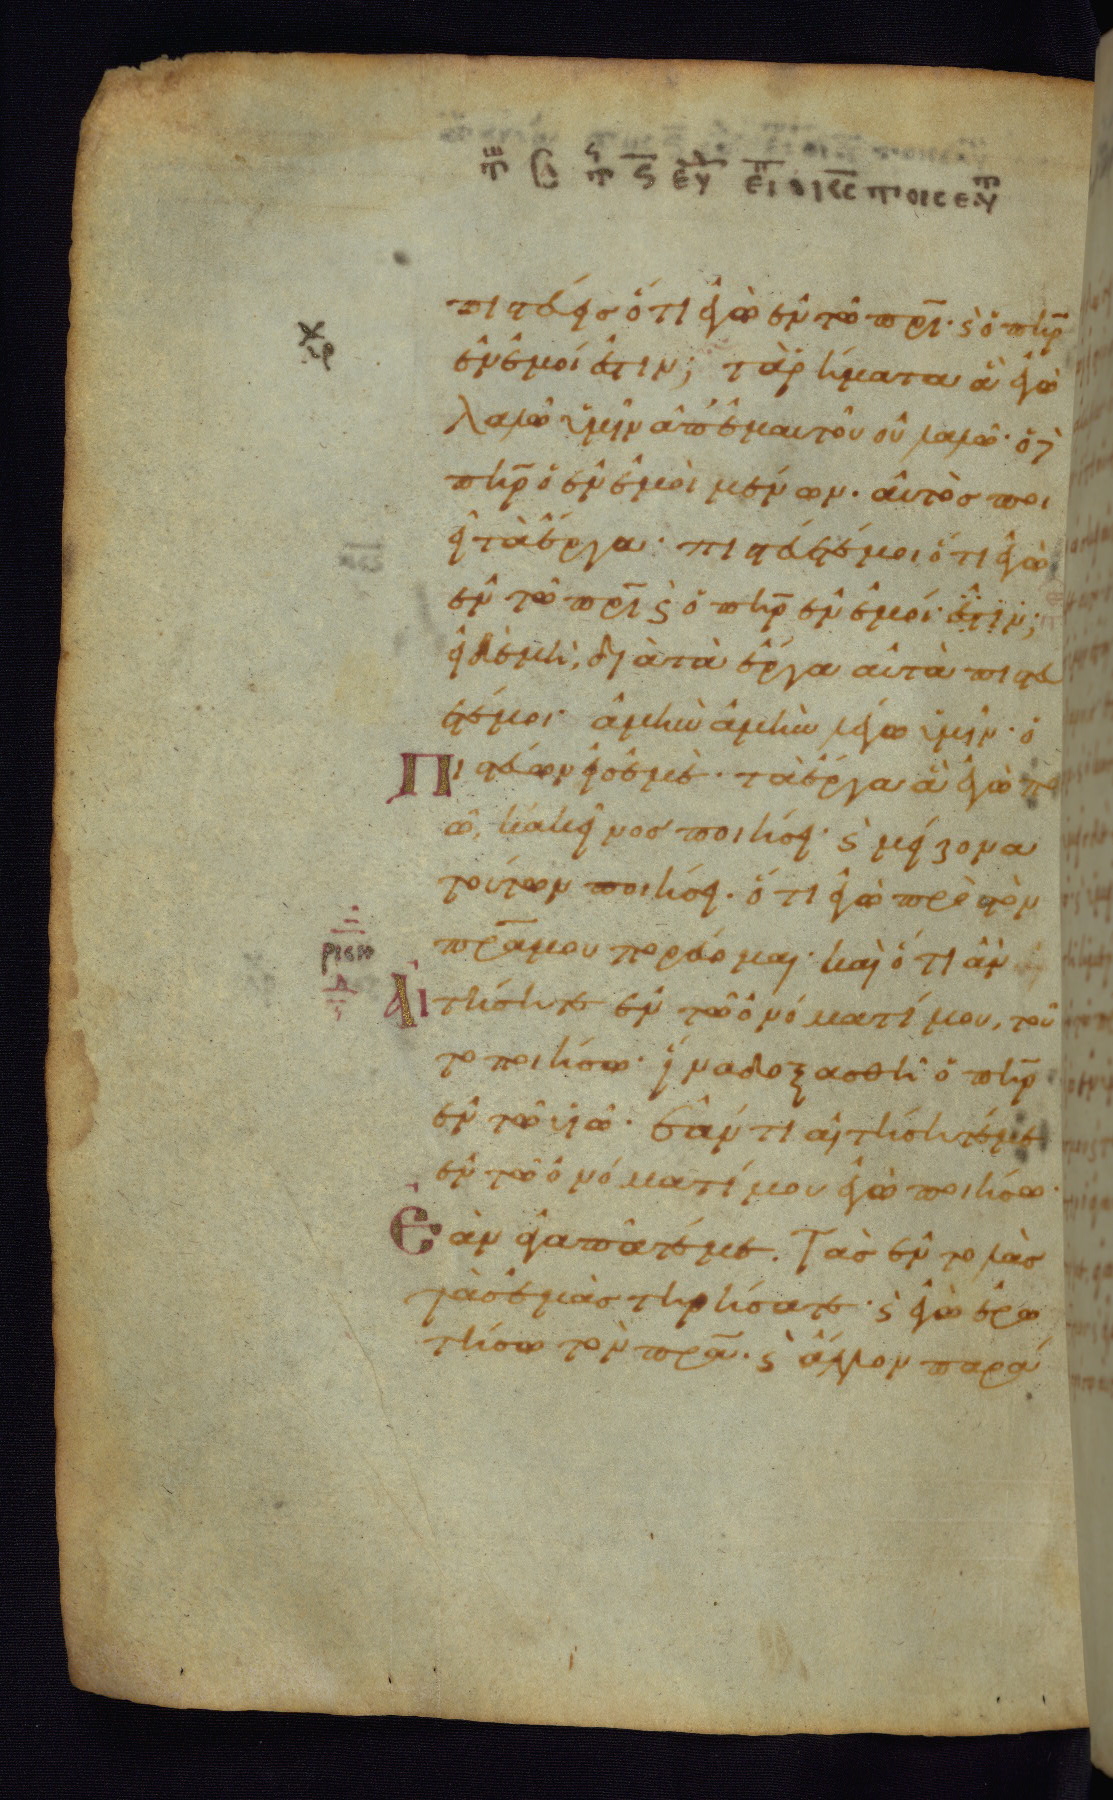 πιστεύεις ὅτι ἐγὼ ἐν τῶ πρι̅· ϗ ὁ πη̅ρ
ἐν ἐμοί ἐστιν; τὰ ῥήματα ἃ ἐγὼ
λαλῶ ὑμῖν ἀπ' ἐμαυτοῦ οὐ λαλῶ· ὁ δὲ
πη̅ρ ὁ ἐν ἐμοὶ μένων. αὐτὸς ποι
εῖ τὰ ἔργα· πιστεύετέ μοι ὅτι ἐγὼ
ἐν τῶ πρι̅ ϗ ὁ πη̅ρ ἐν ἐμοί ἐστιν;
εἰ δὲ μὴ, διὰ τὰ ἔργα αὐτὰ πιστεύ
ετέ μοι· ἀμὴν ἀμὴν λέγω ὑμῖν· ὁ
Πιστεύων εἰς ἐμὲ· τὰ ἔργα ἃ ἐγὼ ποι
ῶ, κἀκεῖνος ποιήσει· ϗ μείζονα
τούτων ποιήσει. ὅτι ἐγὼ πρὸς τὸν
πρ̅α μου πορεύομαι· καὶ ὅτι ἂν
ρ̅ι̅ε̅ ιω
Αἰτήσητε ἐν τῶ ὀνόματί μου, τοῦ
το ποιήσω· ἵνα δοξασθῆ ὁ πη̅ρ
ἐν τῶ υἱῶ· ἐάν τι αἰτήσητέ με
ἐν τῶ ὀνόματί μου ἐγὼ ποιήσω·
Ἐὰν ἀγαπᾶτέ με. Τὰς ἐντολὰς
τὰς ἐμὰς τηρήσατε· ϗ ἐγὼ ἐρω
τήσω τὸν πρ̅α· ϗ ἄλλον παρά